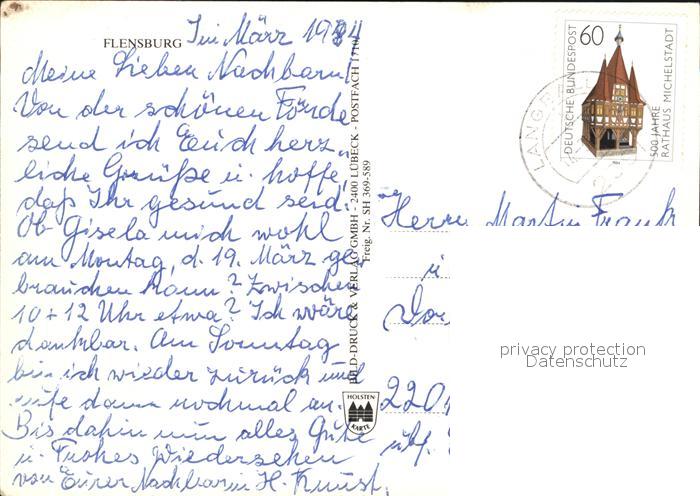 FLENSBURG
Im März 1984
Meine Lieben Nachbarn!
Von der schönen Förde
send ich Euch herz-
liche Grüße u. hoffe,
daß Ihr gesund seid.
Ob Gisela mich wohl
am Montag, d. 19. März ge-
brauchen kann? Zwischen
10 + 12 Uhr etwa? Ich wäre
dankbar. Am Sonntag
bin ich wieder zurück und
rufe dann nochmal an.
Bis dahin nun alles Gute
u. Frohes Wiedersehen
von Eurer Nachbarin H. Kunst.
BILD-DRUCK & VERLAG GMBH - 2400 LÜBECK - POSTFACH 1710
Freig. Nr. SH 369-589
HOLSTEN
KARTE
60
DEUTSCHE BUNDESPOST
500 JAHRE
RATHAUS MICHELSTADT
Herrn Martin Frank
u
220
privacy protection
Datenschutz